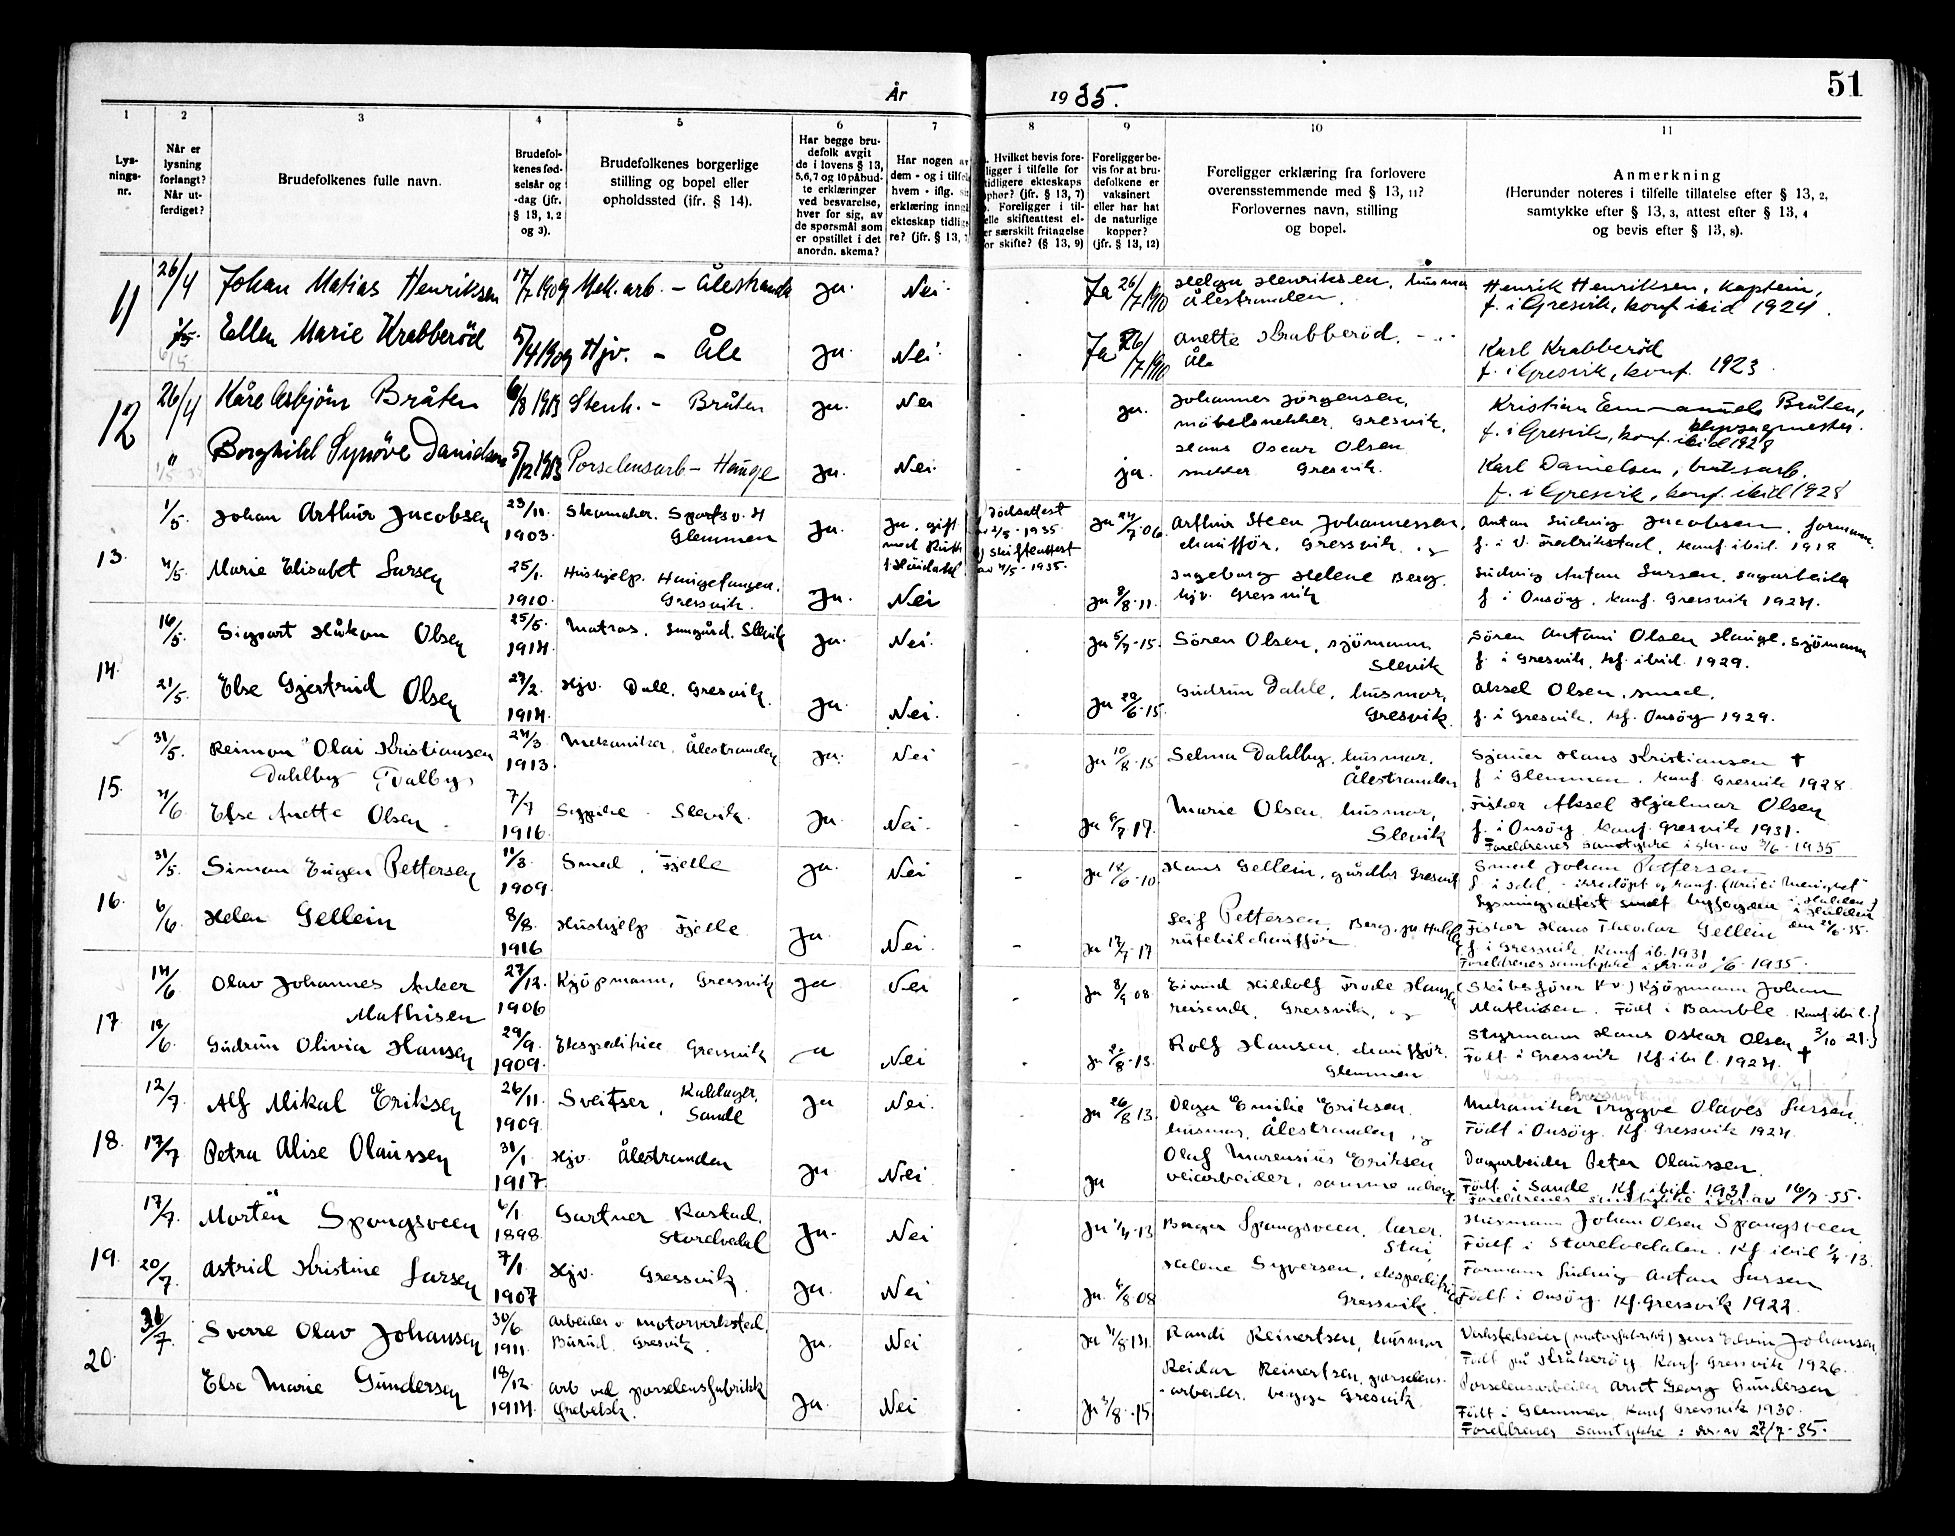 51
År 1935.
1 2 3 4 5 6 7 8 9 10 11
Lys-
nings-
nr.
Når er
lysning
forlangt?
Når ut-
ferdiget?
Brudefolkenes fulle navn.
Brudefol-
kenes fød-
selsår og
-dag (jfr.
§ 13, 1, 2
og 3).
Brudefolkenes borgerlige
stilling og bopel eller
opholdssted (ifr. § 14).
Har begge bru-
defolk avgit
de i lovens § 13,
5,6,7 og 10 påbud-
te erklæringer
ved besvarelse,
hver for sig, av
de spørsmål som
er opstillet i det
anordn. skema?
Har nogen av
dem - og i tilfel
hvem - iflg.
erklæring inng
ekteskap tidlig
re? (jfr. § 13,
Hvilket bevis fore-
ligger i tilfelle for
tidligere ekteskaps
ophør? (jfr. § 13, 7)
Foreligger i til-
elle skifteattest el-
er særskilt fritagelse
or skifte? (§ 13, 9)
Foreligger be-
vis for at bru-
defolkene er
vaksinert
eller har hat
de naturlige
kopper?
(jfr. § 13, 12)
Foreligger erklæring fra forlovere
overensstemmende med § 13, 11?
Forlovernes navn, stilling
og bopel.
Anmerkning
(Herunder noteres i tilfelle tillatelse efter § 13, 2,
samtykke efter § 13, 3, attest efter § 13, 4
og bevis efter § 13, 8).
11 26/4 Johan Matias Henriksen 17/7 1909 Mek. arb. - Ålestrand ja. Nei - Ja 26/7 1910 Helga Henriksen, husmor Henrik Henriksen, kaptein,
Ålestranden. f. i Gresvik, konf ibid 1924.
Ellen Marie Krabberöd 5/4 1909 Hjv. - Åle ja. Nei - Ja 26/7 1910 Anette Krabberöd. - " - Karl Krabberöd
Åle f. i Gresvik, konf. 1923.
12 26/4 Kåre Asbjörn Bråten 6/8 1913 Stenh. - Bråten ja. Nei - ja. Johannes Jörgensen, Kristian Emanuel Bråten,
möbelsnekker, Gresvik, f. i Gresvik, konf. ibid 1928
" Borghild Synöve Danielsen 5/12 1913 Porselensarb - Hauge ja. Nei - ja. Hans Oscar Olsen Karl Danielsen, bruksarb.
snekker Gresvik. f. i Gresvik, konf. ibid 1928
13. 1/5 Johan Arthur Jacobsen 23/11. 1903. Skomaker. Ja. Ja, gift Dødsattest Ja 24/7-06. Arthur Steen Johannessen, Anton Ludvig Jacobsen, formann.
Glemmen med Ruth - 1935 chauffør, Gressvik. og f. i V. Fredrikstad, konf. ibid. 1918
Skifteattest
4/5. Marie Elisabet Larsen 25/1. 1910. Hushjelp. Haugetangen, Gressvik. Ja. Nei av 4/5 - 1935. Ja 8/8-11. Ingeborg Helene Berg. Ludvig Anton Larsen, sagarbeider
hjv. Gressvik f i Onsöy, konf. Gressvik 1924.
14. 16/5 Sigvart Håkon Olsen 25/5. 1914. Matros. Slevik Ja. Nei. - Ja 5/7-15. Sören Olsen, sjömann Sören Antoni Olsen Hauge, sjömann
Slevik f. i Gresvik, kf. ibid. 1929.
21/5. Else Gjertrud Olsen 27/2. 1914. Hjv. Dale, Gresvik. Ja. Nei. - Ja 29/6-15. Gudrun Dahle, husmor, Aksel Olsen, smed,
Gresvik. f. i Gresvik, kf. Onsöy 1929.
15. 31/5. Reimon Olai Kristiansen 24/3 1913. Mekaniker, Ålestranden Ja. Nei - Ja 10/8-15 Selma Dahlby, husmor, Sjauer Hans Kristiansen †
Dahlby (Dalby) Ålestranden f i Glemmen, konf Gresvik 1928.
4/6. Else Anette Olsen. 7/7 1916. Sypike Slevik Ja. Nei. - Ja 6/7 17. Marie Olsen, husmor, Fisker Aksel Hjalmar Olsen
Slevik f. i Onsöy, konf. Gresvik 1931.
Foreldrenes samtykke i skr. av 3/6 - 1935
16. 31/5. Simon Eugen Pettersen 11/3. 1909. Smed, Fjelle Ja. Nei - Ja 12/6-10. Hans Gellein, gårdbr. Gresvik Smed Johan Pettersen
Lysningsattest sendt byfogden i Halden
6/6. Helen Gellein 8/8. 1916 Hushjelp Fjelle Ja. Nei. - Ja 17/7-17 Leif Pettersen. Berg, pr Halden Fisker Hans Theodor Gellein
rutebilchauffør f. i Gressvik Konf ib. 1931
Foreldrenes samtykke i skr. av 1/6 - 1935.
17. 14/6 Olav Johannes Anker 27/12. 1906 Kjöpmann, Gressvik Ja Nei - Ja 8/9 08. Eivind Hildolf Frode Hansen (Skibsförer Kv.) Kjöpmann Johan
Mathisen reisende, Gressvik, og Mathisen. Födt i Bamble. Konf ibid. 3/10 21.
18/6. Gudrun Olivia Hansen 29/9. 1909. Ekspeditrice Gressvik Nei Rolf Hansen, chauffør. Styrmann Hans Oskar Olsen †
Glemmen Födt i Gressvik Kf. ibid. 1924.
18. 12/7 Alf Mikal Eriksen 26/11. 1909. Sveitser, Sande Ja Nei. - Ja 26/8 13. Olga Emilie Eriksen. Mekaniker Tryggve Olaves Larsen.
husmor, Ålestranden og Födt i Onsöy. Kf. Gressvik 1924.
17/7 Petra Alise Olaussen 31/1. 1917. Hjv. Ålestranden Ja Nei. - Ja Olaf Marensius Eriksen Dagarbeider Peter Olaussen.
veiarbeider, samme adresse Födt i Sande Kf. ibid. 1931
Foreldrenes samtykke i skr. av 16/7-35.
19. 17/7. Morten Spangsveen 6/1. 1898. Gartner Rastad, Storelvedal Ja. Nei - Ja 1/4-13 Borger Spangsveen, lærer. Husmann Johan Olsen Spangsveen
Stai Födt i Storelvedalen. Kf. ibid 1/4-13.
20/7. Astrid Kristine Larsen 7/1. 1907 Hjv. Gressvik. Ja. Nei Ja. 6/8 08 Halene Syversen, ekspeditrice Formann Ludvig Anton Larsen
Gressvik. Födt i Onsöy. Kf. Gressvik 1922.
20. 31/7. Sverre Olav Johansen 30/6. 1911. Arbeider v motorverksted, Ja. Nei - Ja 11/8-14. Randi Reinertsen, husmor Verkstedseier (motorfabrikk) Jens Edvin Johansen
Burud, Gresvik. Födt på Kråkeröy Konf. Gressvik 1926.
Else Marie Gundersen 18/12. 1914. Arb ved porselensfabrikk Ja. Nei - Ja 3/8-15. Reidar Reinertsen, porselens- Porselensarbeider Arnt Georg Gundersen
-arbeider, begge Gresvik. Födt i Glemmen, Konf Gressvik 1930.
Foreldrenes samtykke i skr. av 27/7-35.